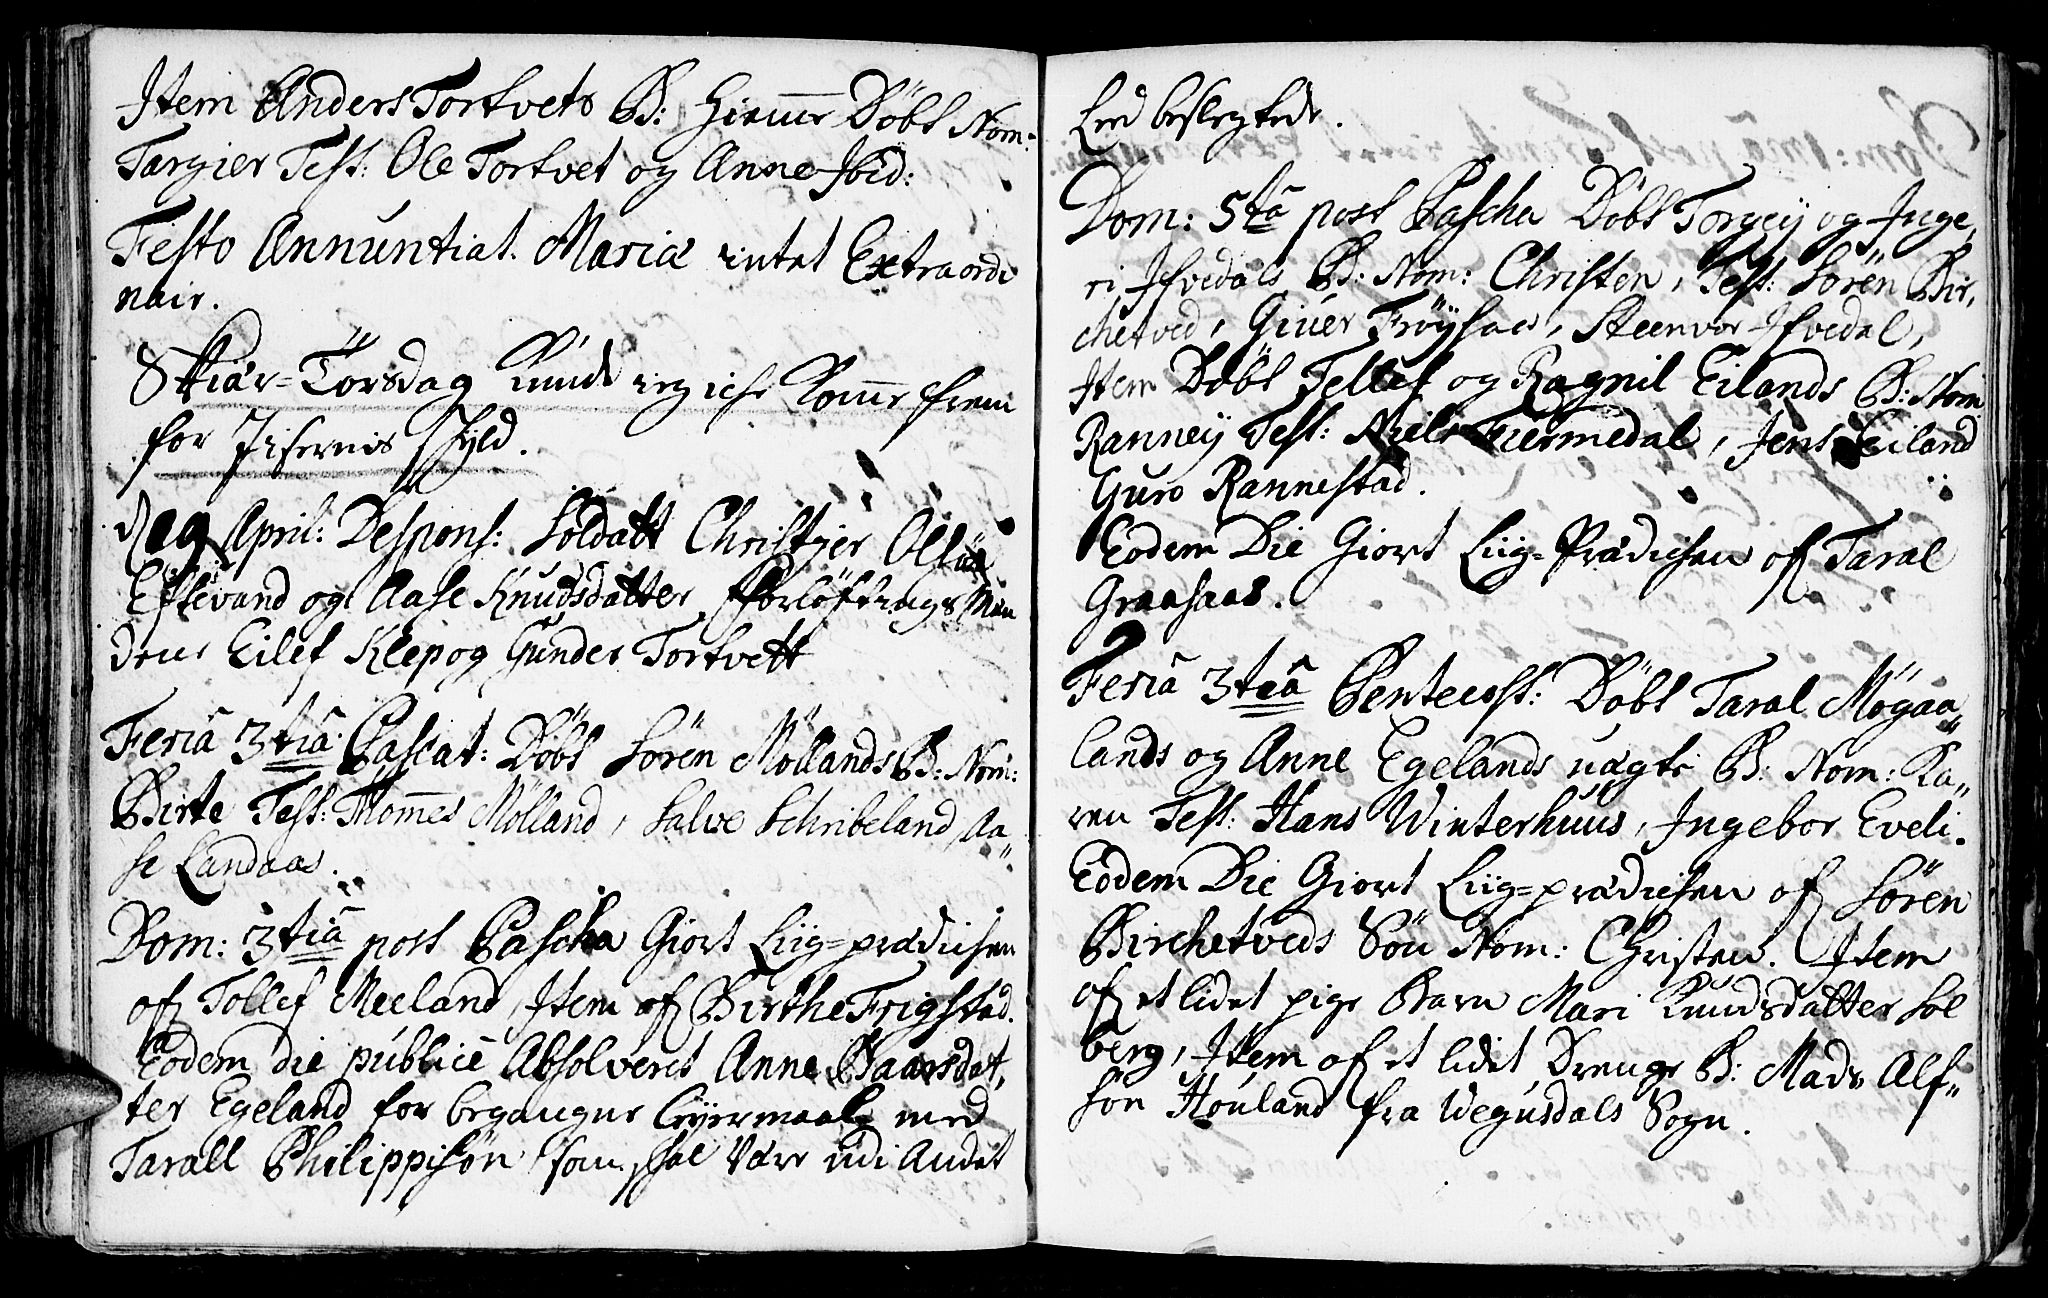 Item Anders Tortvets B: hiemme Döbt Nom:
Targier Test: Ole Tortvet og Anne Ibid:
Festo Annuntiat. Mariæ intet Extraordi
nair.
Skiær-Torsdag Kunde ieg iche Komme frem
for Isernis skyld.
d 29 April: Despons: Soldatt Christjer
Eftevand og Aase Knudsdatter fforlöftnings Mæn
dene Eilef Klep og Gunder Tortvett
Feriâ 3tiâ Pascat: Döbt Sören Möllands B: Nom:
Birte Test: Thomes Mölland, Salve Schribeland, Aa„
se Landaas.
Dom: 3tiâ post Pascha Giort Liig-prædichen
of Tollef Meeland, Item of Birthe Frigstad.
Eodem die publicè Absolveret Anne Baarsdat,
ter Egeland for begangne leyermaal med
Tarall Philippisön som skal være udi Andet
Leed beslegtede.
Dom: 5tâ post Pascha Döbt Torgey og Inge,
ri Ifvedals B: Nom: Christen, Test: Sören Bir,
chetved, Giuer Fröysaas, Steenvor Ifvedal,
Item Döbt Tellef og Ragnil Eilands B: Nom
Ranney Test: Niels Fiermedal, Jens Eiland
Guro Rannestad.
Eodem Die Giort Liig-Prædichen of Taral
Graasaas.
Feriâ 3tiâ Pentecost: Döbt Taral Mögaa„
lands og Anne Egelands uægte B: Nom: Ka„
ren Test: Hans Winterhuus, Ingebor Eveli.
Eodem Die Giort Liig-prædichen of Sören
Birchetveds Sön Nom: Christen. Item
of et lidet pige Barn Mari Knudsdatter Sol
berg, Item of et lidet Drenge B: Mads Alf„
sön Höuland fra Wegusdals Sogn.